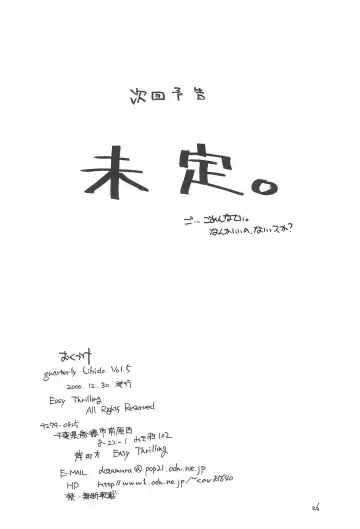 次回予告
未定。
ご…ごめんなさい。
なんかいいの、ないっスか?
おくづけ
quarterly Libido Vol.5
2000.12.30 発行
Easy Thrilling
All Rights Reserved
〒274-0825
千葉県船橋市前原西
8-22-1 102
方 Easy Thrilling
E-MAIL @pop21.odn.ne.jp
HP http://www1.odn.ne.jp/~
禁・無断転載
26